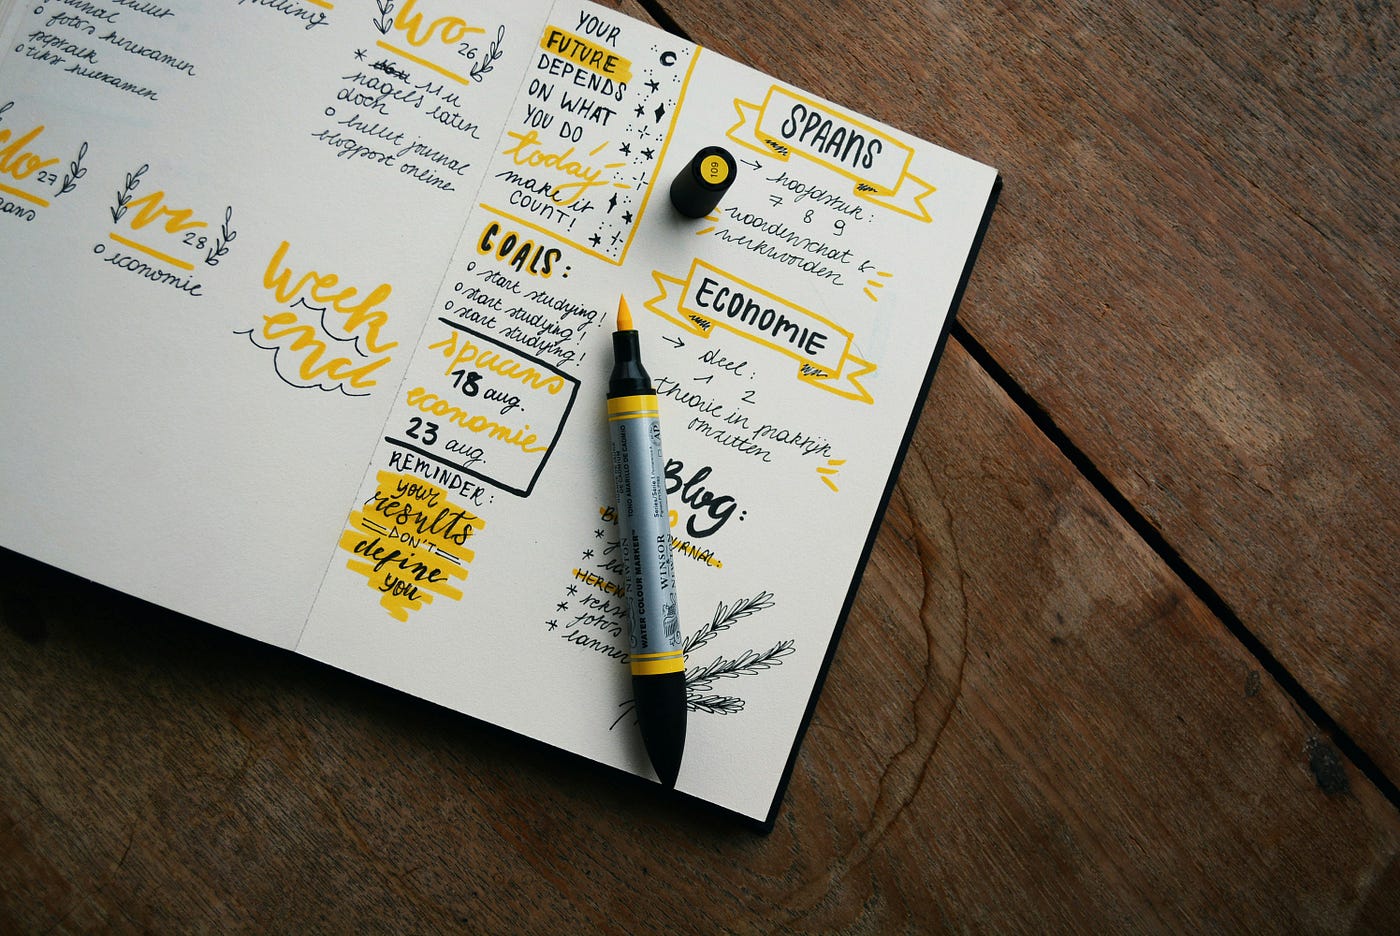 bullet
journal
o foto's herexamen
peptalk
o tekst herexamen
do
27
wo
26
* 11 u
nagels laten
doen
o bullet journal
blogpost online
vr
28
o economie
week
end
YOUR
FUTURE
DEPENDS
ON WHAT
YOU DO
today
make it
COUNT!
GOALS:
o start studying!
o start studying!
o start studying!
spaans
18 aug.
economie
23 aug.
REMINDER:
your
results
DON'T
define
you
SPAANS
→ hoofdstuk:
7 8 9
woordenschat &
werkwoorden
ECONOMIE
→ deel:
1 2
theorie in praktijk
omzetten
Blog:
*
*
*
* tekst
* foto's
* banner
109
WINSOR
NEWTON
WATER COLOUR MARKER™
Series/Série 1